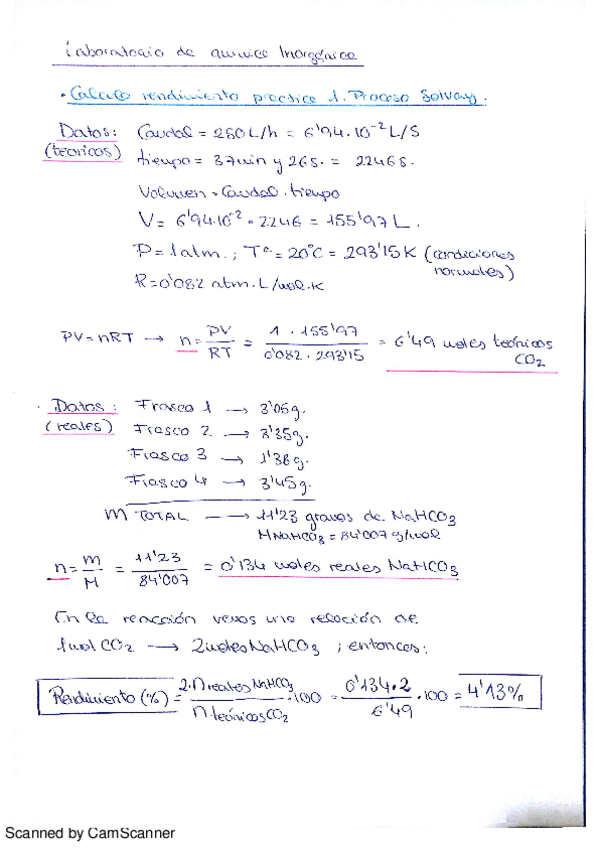 Laboratorio de química Inorgánica
· Calculo rendimiento practica 1. Proceso Solvay.
Datos: Caudal = 250 L/h = 6'94·10⁻² L/s
(teoricos) tiempo = 37min y 26s. = 2246s.
Volumen = Caudal · tiempo
V = 6'94·10⁻² · 2246 = 155'97 L.
P = 1atm. ; Tª = 20°C = 293'15K (condiciones normales)
R = 0'082 atm·L/mol·K
PV = nRT → n = PV/RT = 1 · 155'97 / 0'082 · 293'15 = 6'49 moles teóricos CO₂
· Datos: Frasco 1 → 3'05g.
(reales) Frasco 2 → 3'35g.
Frasco 3 → 1'38g.
Frasco 4 → 3'45g.
m TOTAL → 11'23 gramos de NaHCO₃
MNaHCO₃ = 84'007 g/mol
n = m/M = 11'23/84'007 = 0'134 moles reales NaHCO₃
En la reacción vemos una relación de
1mol CO₂ → 2moles NaHCO₃ ; entonces:
Rendimiento (%) = 2·n reales NaHCO₃ / n teóricos CO₂ · 100 = 0'134·2 / 6'49 · 100 = 4'13%
Scanned by CamScanner